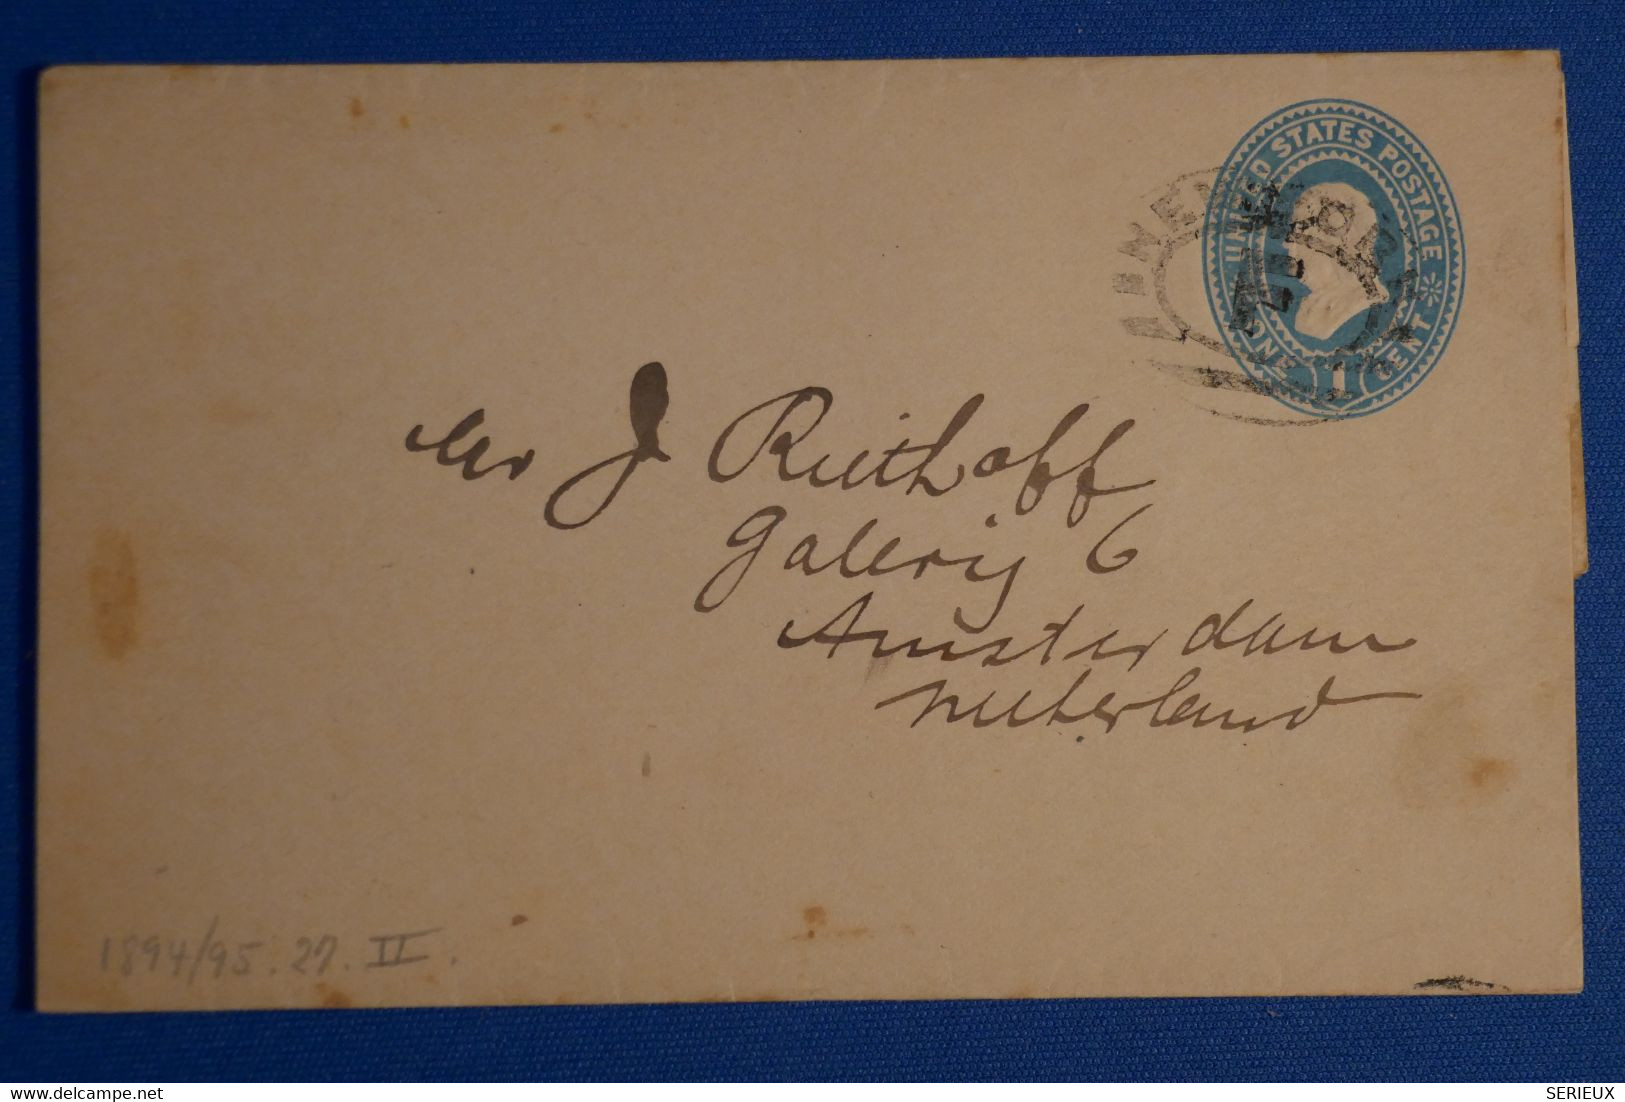 UNITED STATES POSTAGE
ONE 1 CENT
NEW YORK
Mr J Riethoff
Galerij 6
Amsterdam
Neterland
1894/95. 27. II.
www.delcampe.net
SERIEUX